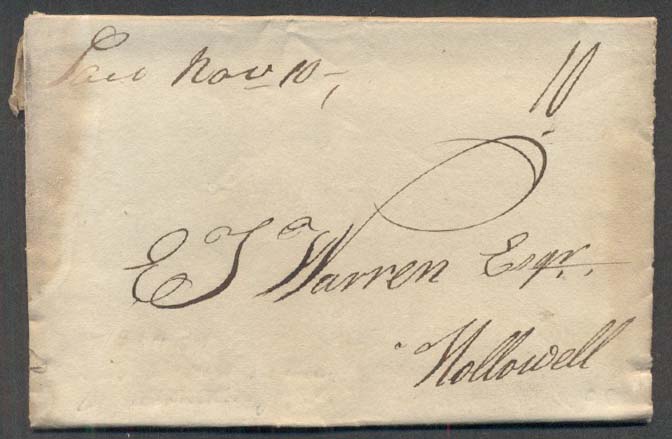 Saco Nov 10
10
E T Warren Esqr.
Hollowell